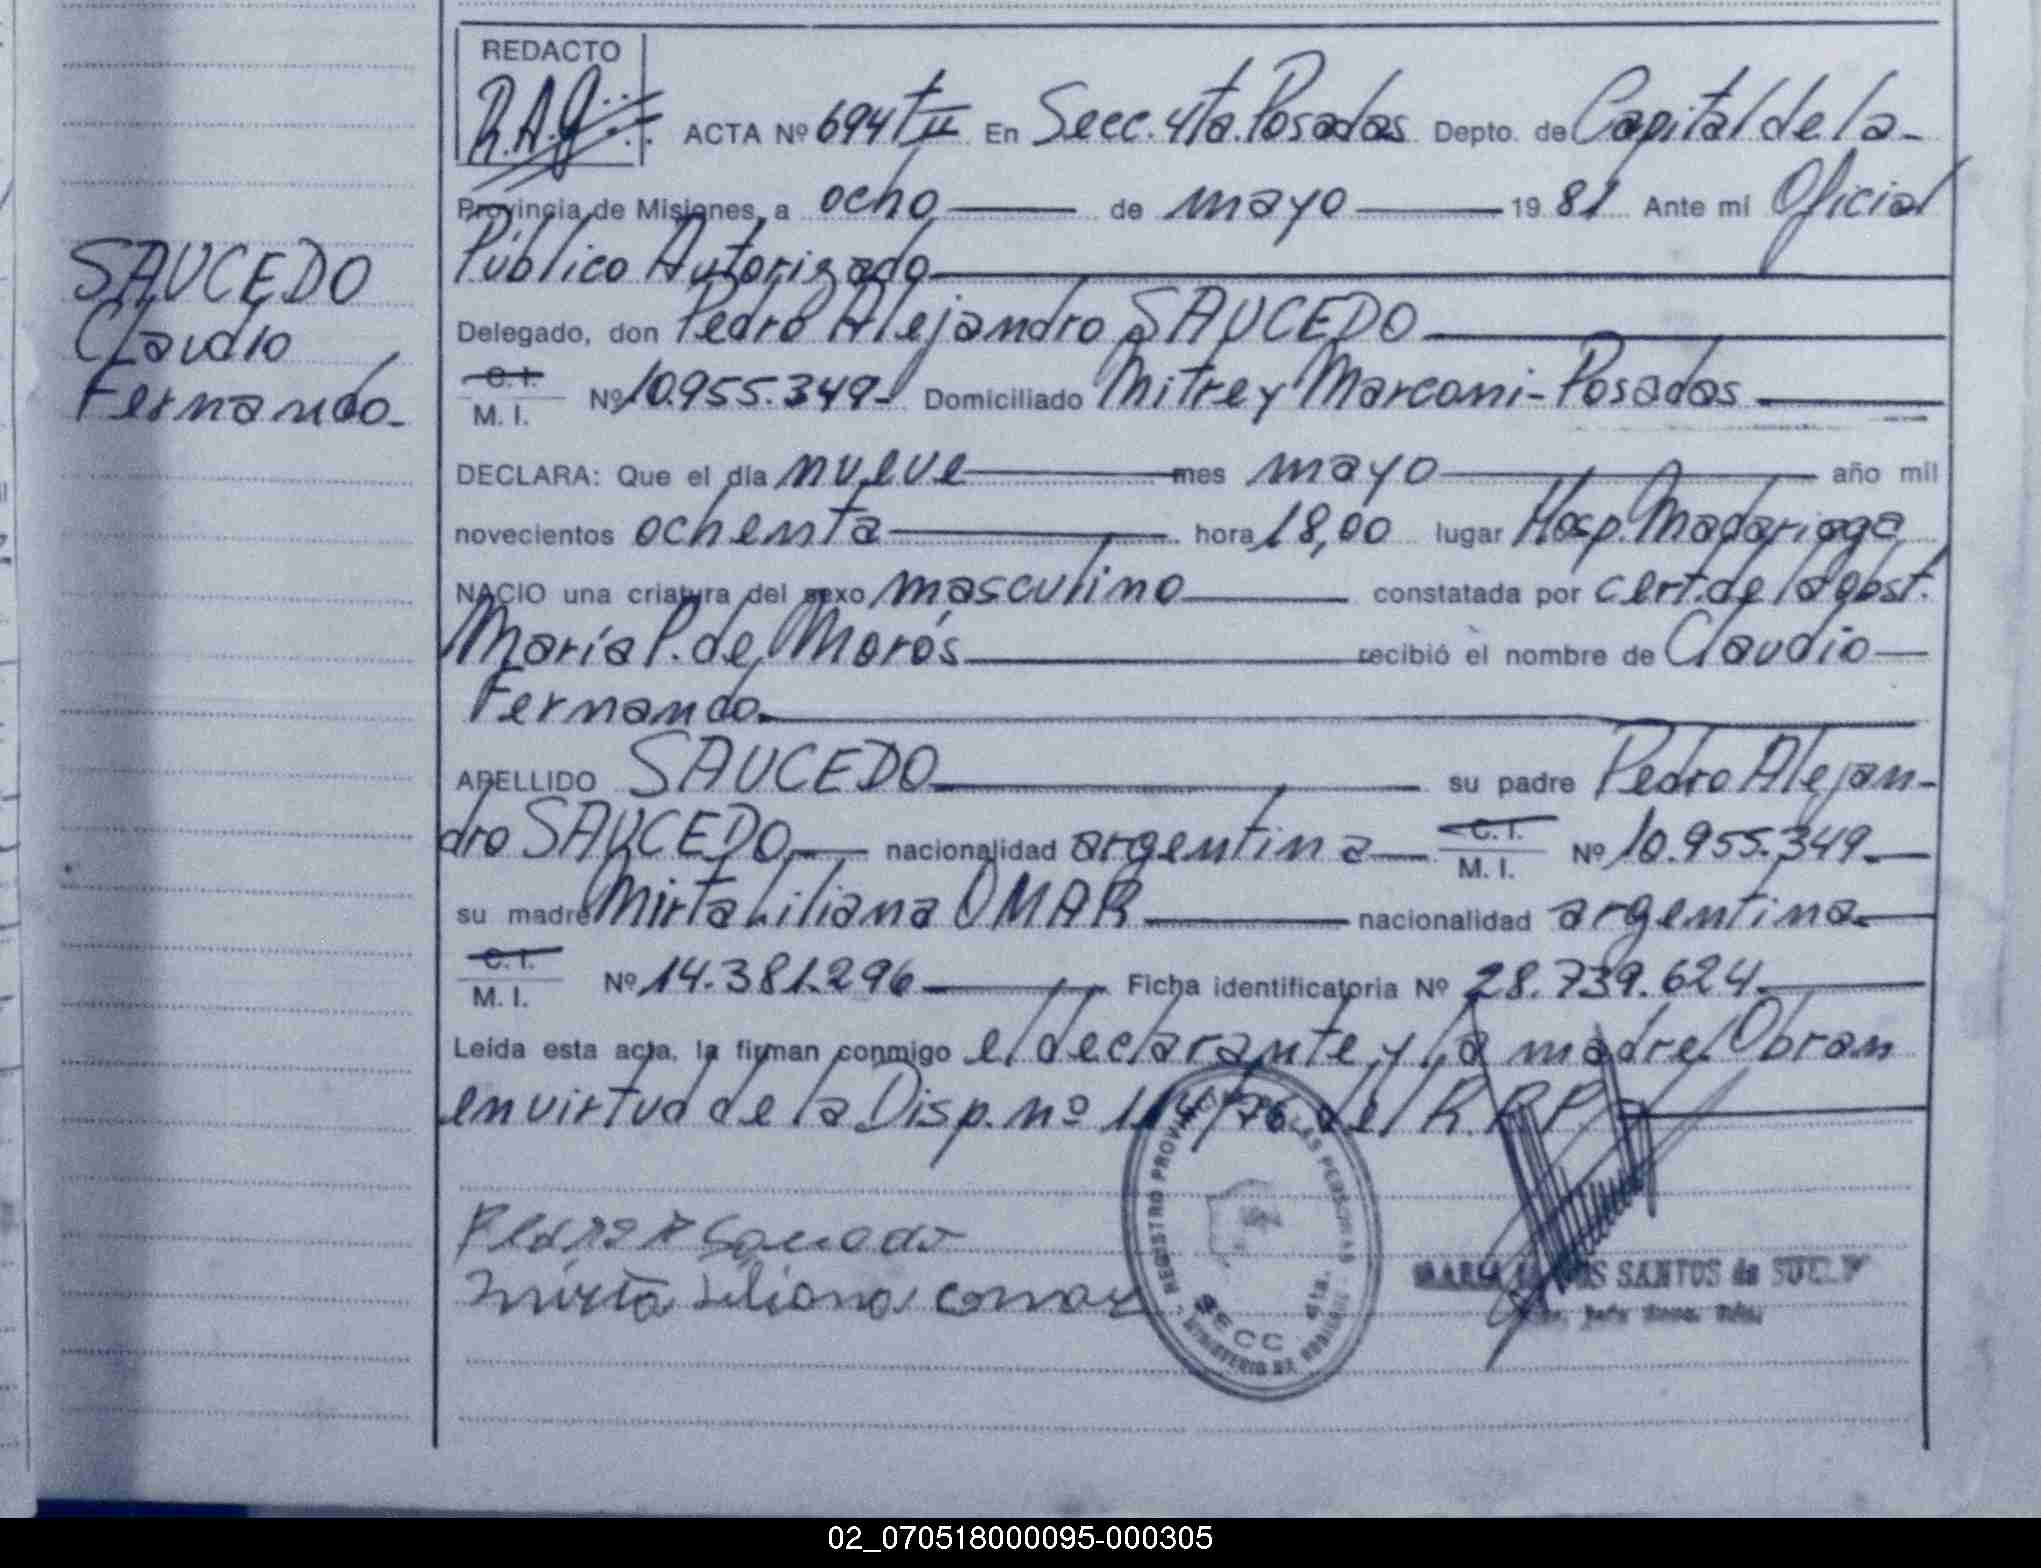 REDACTO
R.A.G.
ACTA Nº 694 tII En Secc. 4ta. Posadas Depto. de Capital de la-
Provincia de Misiones, a ocho de mayo 19 81 Ante mi Oficial
Público Autorizado
Delegado, don Pedro Alejandro SAUCEDO
C. I.
M. I. Nº 10.955.349- Domiciliado Mitre y Marconi - Posadas
DECLARA: Que el día nueve mes mayo año mil
novecientos ochenta hora 18,00 lugar Hosp. Madariaga
NACIO una criatura del sexo masculino constatada por cert. de la obst.
María P. de Morós recibió el nombre de Claudio
Fernando.
APELLIDO SAUCEDO su padre Pedro Alejan-
dro SAUCEDO nacionalidad argentina C. I.
M. I. Nº 10.955.349.
su madre Mirta Liliana OMAR nacionalidad argentina
C. I.
M. I. Nº 14.381.296 Ficha identificatoria Nº 28.739.624
Leída esta acta, la firman conmigo el declarante y la madre. Obran
en virtud de la Disp. nº 114/76 del R.P.P.
SAUCEDO
Claudio
Fernando.
Mirta Liliana
REGISTRO PROVINCIAL DE LAS PERSONAS
SECC 4ta.
MINISTERIO DE
MARIA SANTOS de
02_070518000095-000305